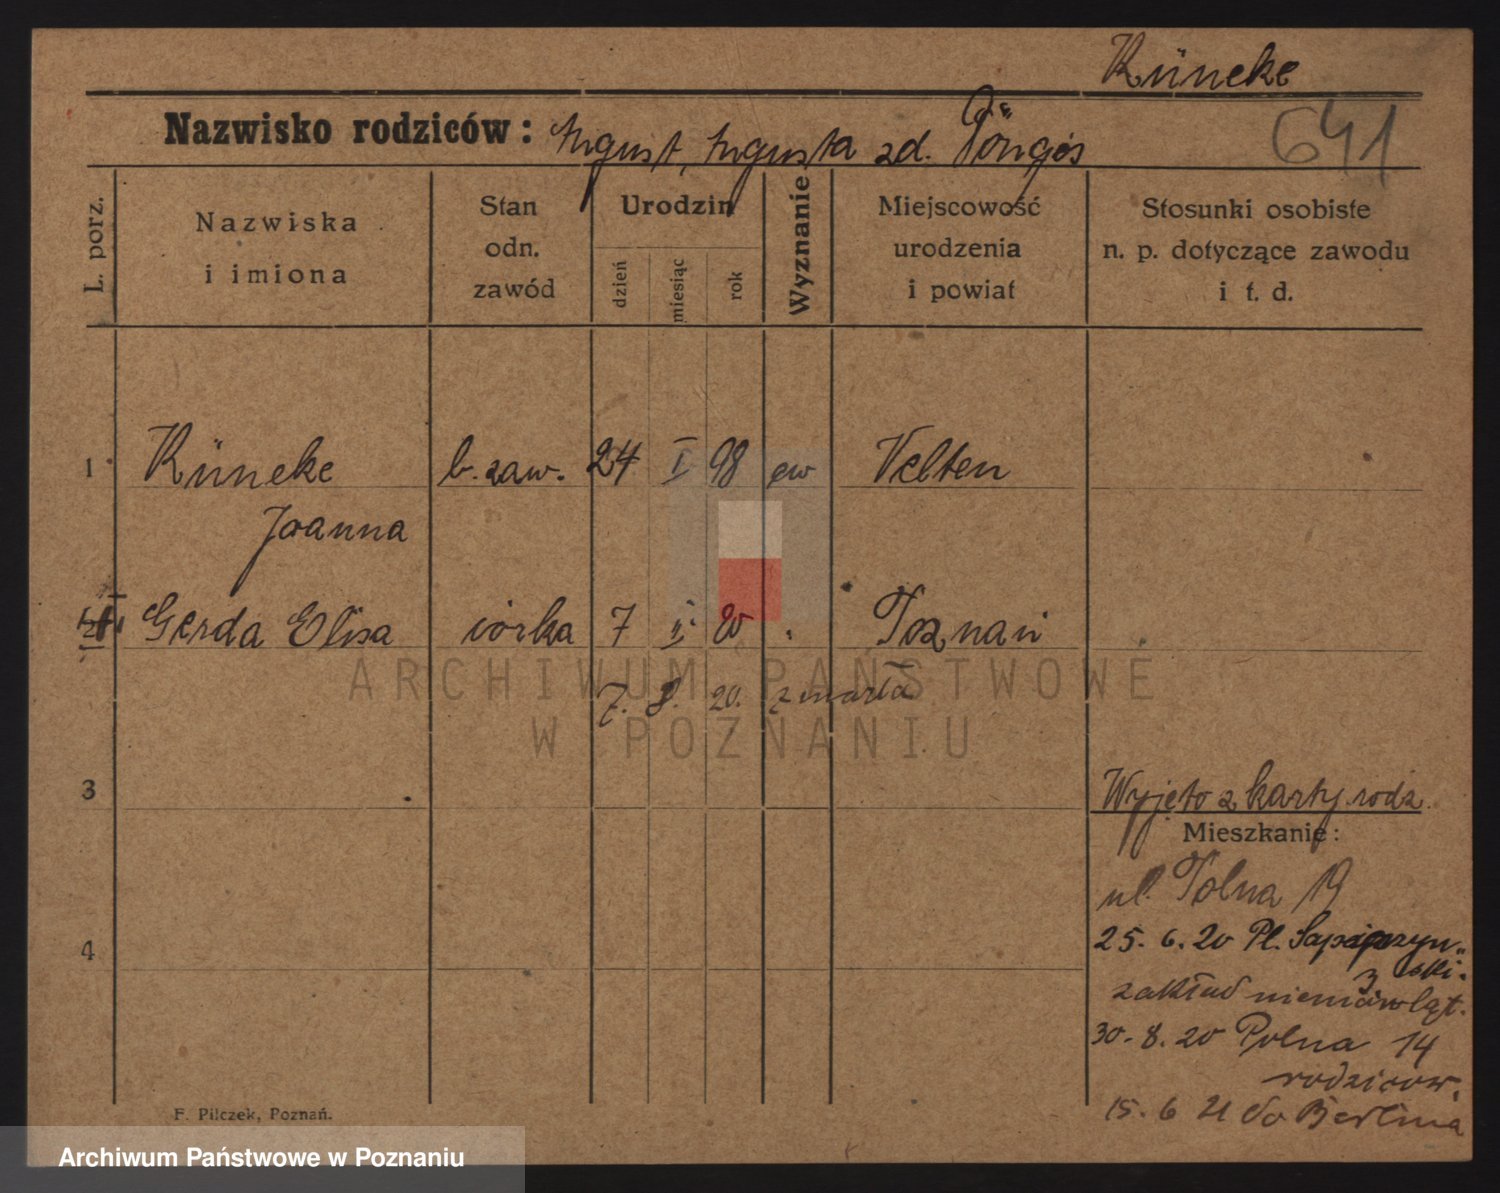 Küneke
641
Nazwisko rodziców: August, Augusta zd.
L. porz.
Nazwiska
i imiona
Stan
odn.
zawód
Urodzin
dzień
miesiąc
rok
Wyznanie
Miejscowość
urodzenia
i powiat
Stosunki osobiste
n. p. dotyczące zawodu
i t. d.
1 Küneke b. zaw. 24 I 98 ew Velten
Joanna
2 Gerda Elisa córka 7 II 20 " Poznań
7. 8. 20. zmarła
3
Wyjęto z karty rodz.
Mieszkanie:
ul. Polna 19
4
25. 6. 20 Pl.
zakład niemowląt.
30. 8. 20 Polna 14
rodziców.
15. 6 21 do Berlina
F. Pilczek, Poznań.
ARCHIWUM PAŃSTWOWE
W POZNANIU
Archiwum Państwowe w Poznaniu